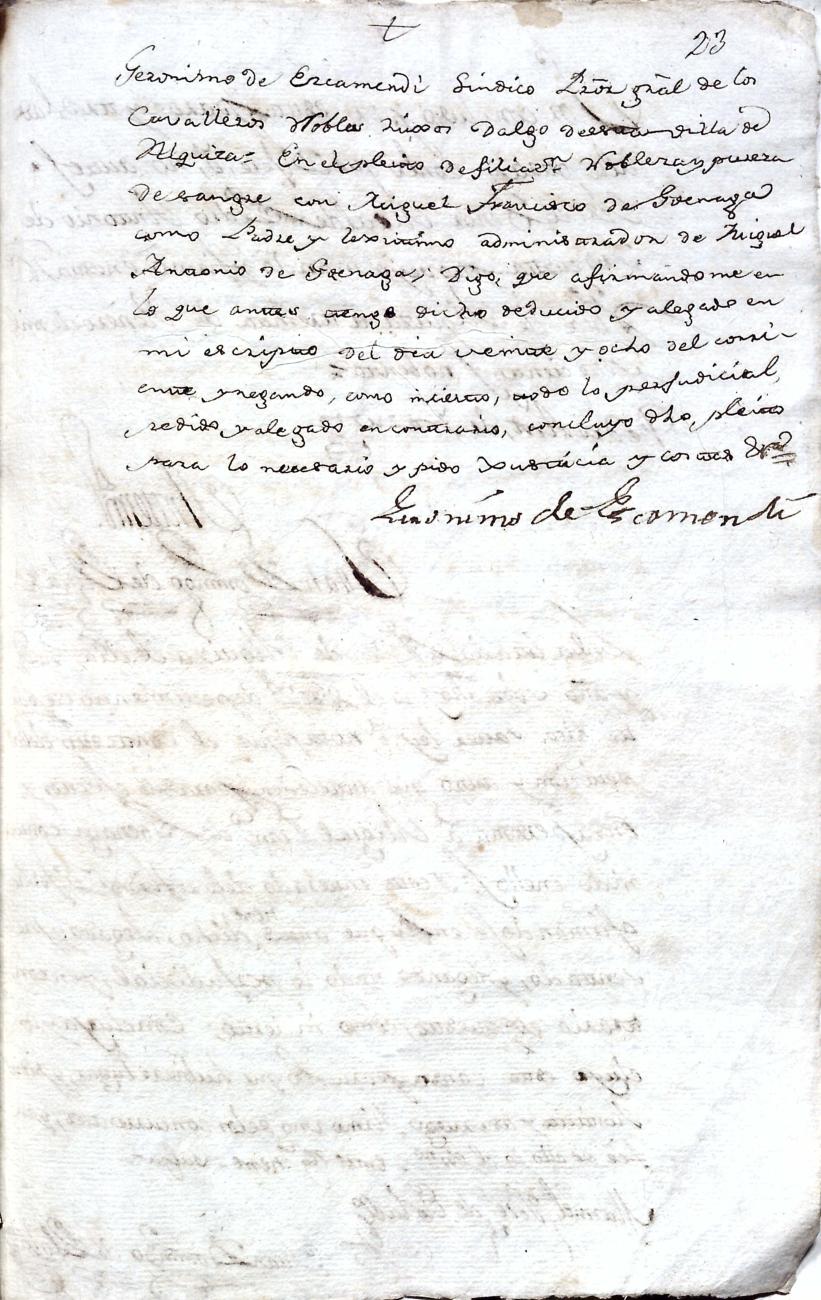 23
Geronimo de Ezcamendi Sindico Prōr grāl de los
Cavalleros Nobles hixos Dalgo de esta villa de
Alquiza = En el pleito de filiaⁿ Nobleza y pureza
de sangre con Miguel Francisco de Goenaga
como Padre y lexitimo administrador de Miguel
Antonio de Goenaga, Digo, que afirmandome en
lo que antes tengo dicho deducido y alegado en
mi escripto del dia veinte y ocho del corri-
ente, y negando, como incierto, todo lo perjudicial,
pedido, y alegado en contrario, concluyo dho pleito
para lo necesario y pido Xusticia y costas
Geronimo de Ezcamendi